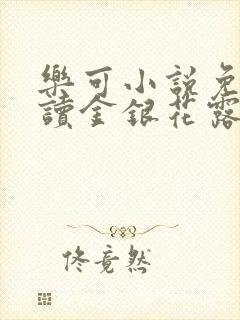 樂可小說免
讀金銀花露
佟竟然